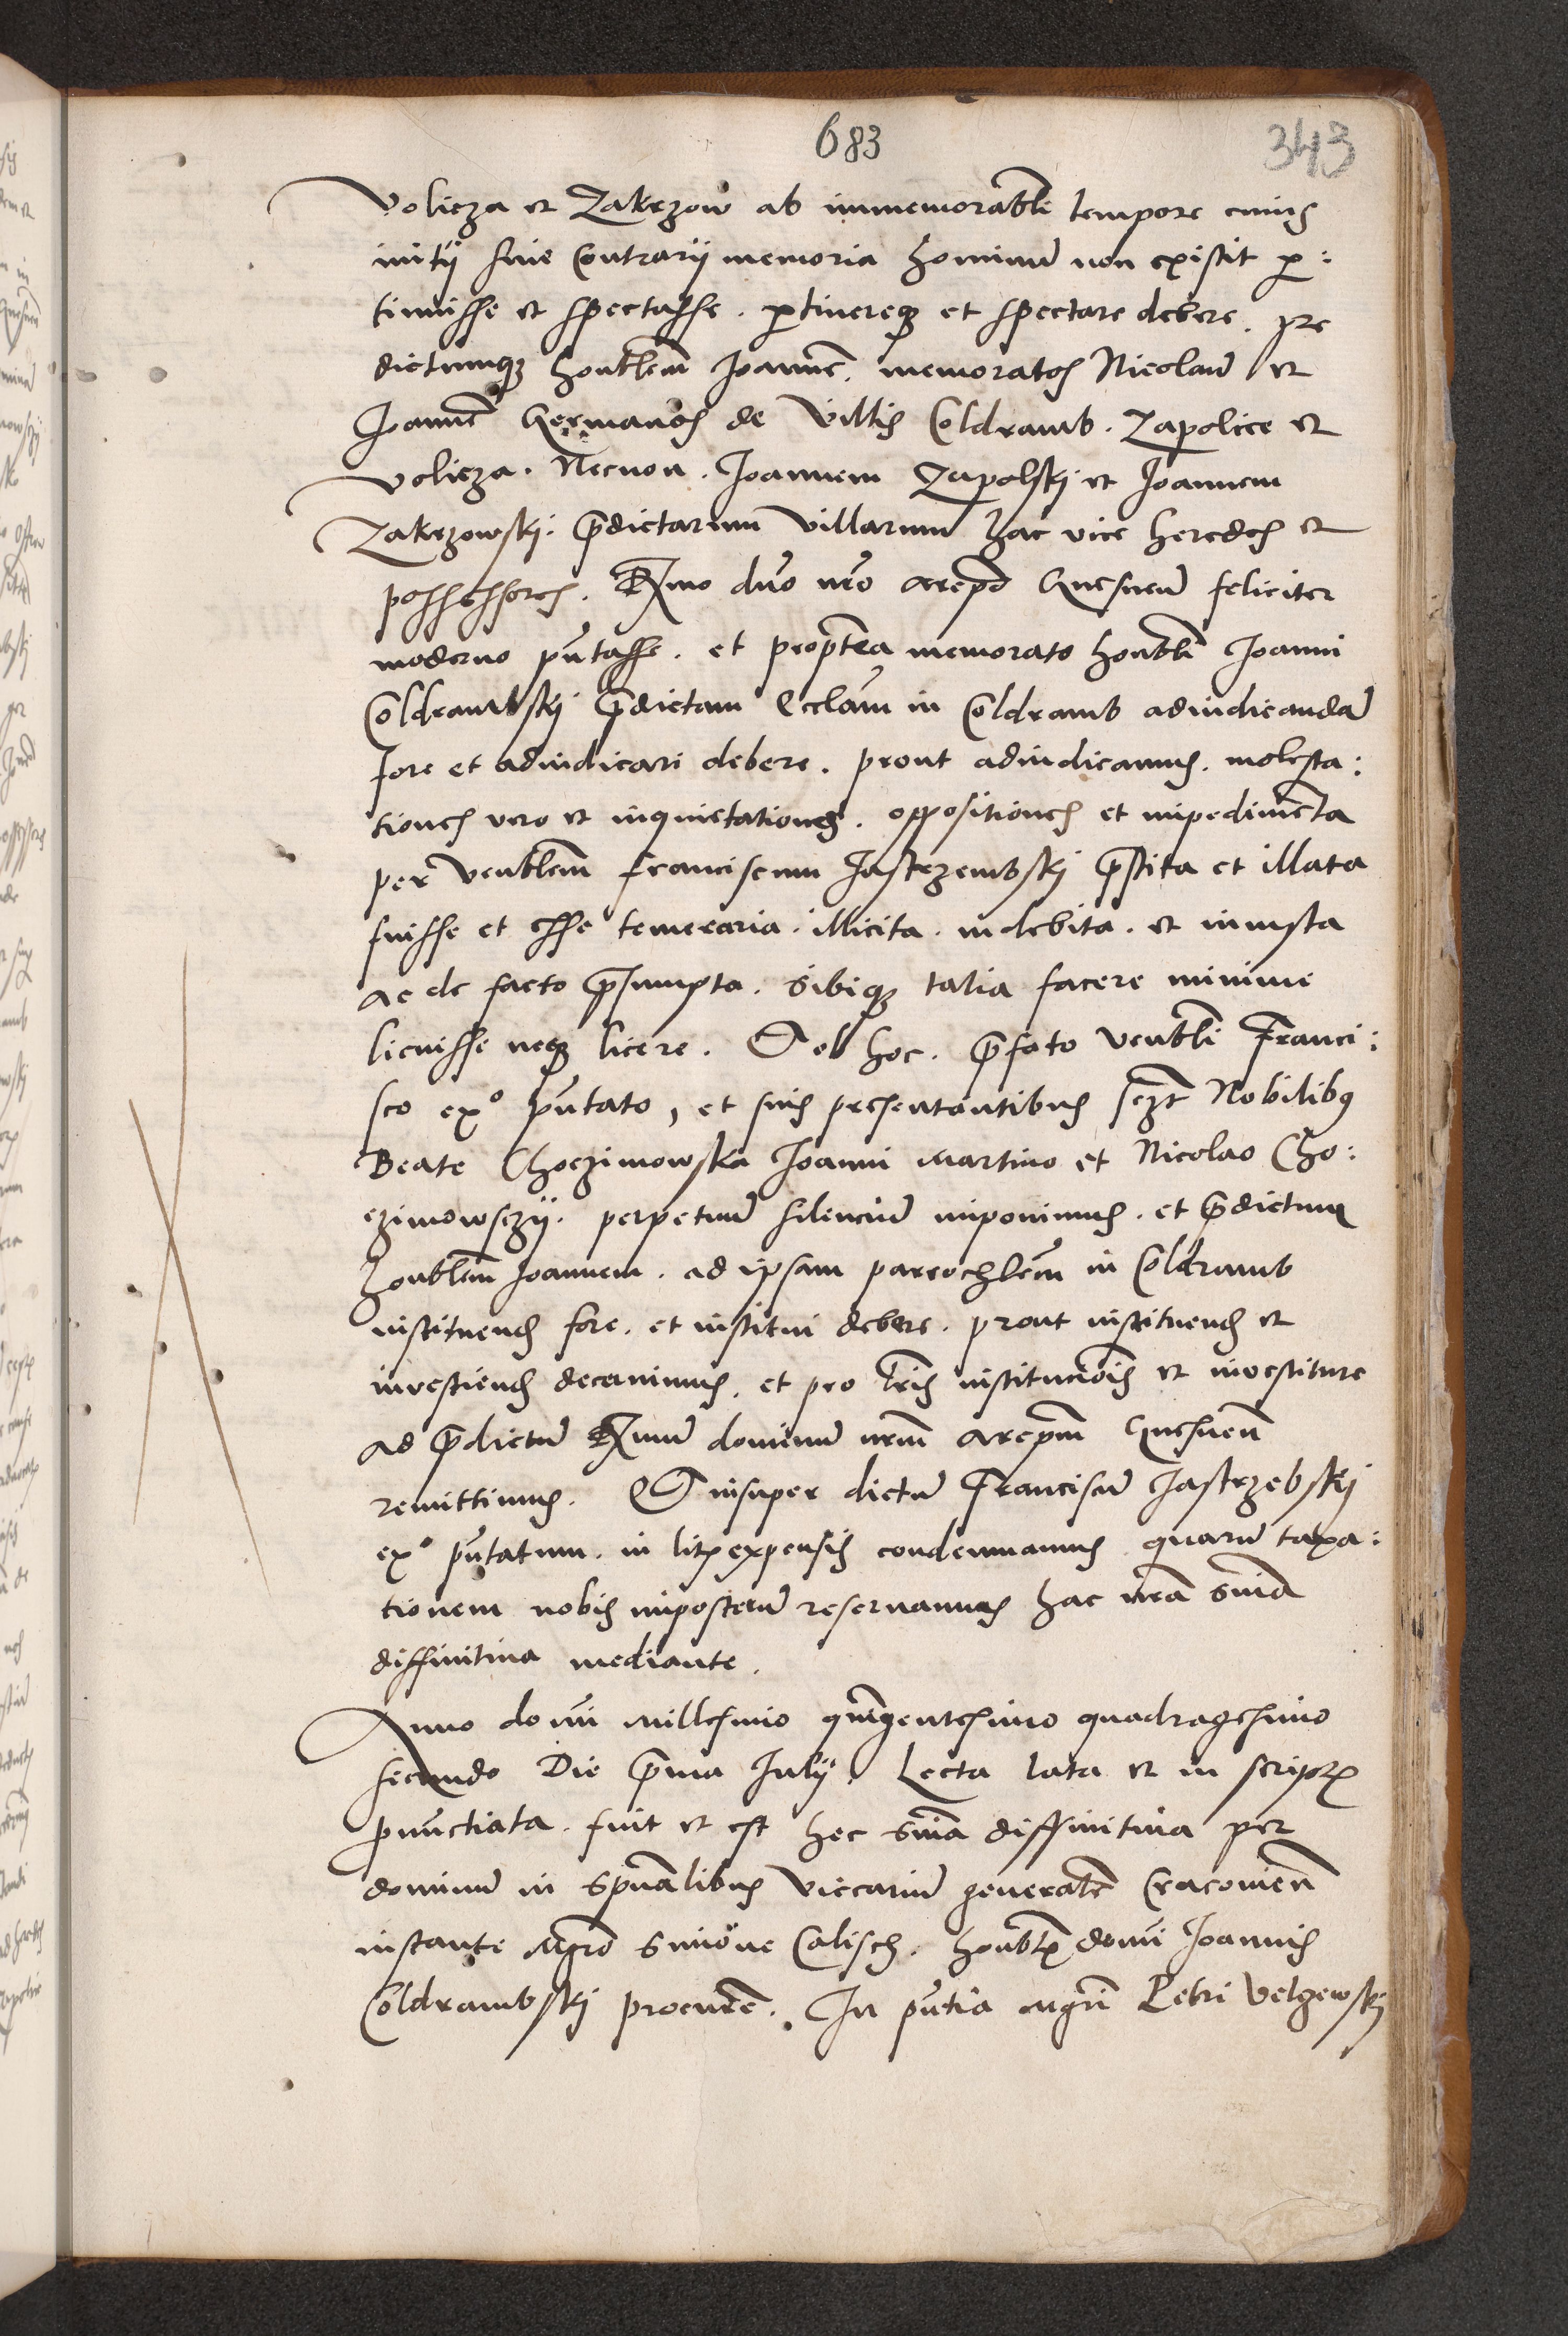 683
343
Volicza et Zakrzow ab immemorabli tempore cuius
initij sive Contrarij memoria hominu non existit p:
tinuisse et spectasse. ptinereqz et spectare debere. pre
dictumqz honblem Joanne. memoratos Nicolau et
Joanne Germanos de Villis Coldramb. Zapolice et
Volicza. Necnon. Joannem Zapolskj et Joannem
Zakrzowskj. pdictarum villarum hac vice heredes et
possessores. Rmo dno nro arepo Gnesnen feliciter
moderno pntasse. et proptea memorato honbli Joanni
Coldrambskj pdictam Ecclam in Coldramb adiudicanda
fore et adiudicari debere. prout adiudicamus. molesta:
tiones vero et inquietationes. oppositiones et impedimenta
per venblem Franciscum Jastrzembskj pstita et illata
fuisse et esse temeraria. illicita. indebita. et iniusta
ac de facto psumpta. sibiqz talia facere minime
licuisse neqz licere. Et ob hoc. pfato venbli Franci:
sco exº pntato, et suis presentantibus sczt Nobilibus
Beate Choczimowska Joanni Martino et Nicolao Cho:
czimowsczij. perpetuu silenciu imponimus. et pdictum
honblem Joannem. ad ipsam parrochlem in Coldramb
instituend fore. et institui debere. prout instituend et
investiend decernimus. et pro lris institucionis et investiture
ad pdictu Rmu dominu nrm arepm Gnesnen
remittimus. Et insuper dictu Franciscu Jastrzebskj
exº pntatum. in litis expensis condemnamus quaru taxa:
tionem nobis imposteru reservamus hac nra snia
diffinitiva mediante.
Anno domi millesimo quingentesimo quadragesimo
secundo Die pma Julij. Lecta lata et in scriptis
pnunctiata. fuit et est hec snia diffinitiva per
dominu in spualibus vicariu generale Cracovien
instante Mgro Simone Calisch. honblis domi Joannis
Coldrambskj procure. In pntia Mgri Petri Velgewskj